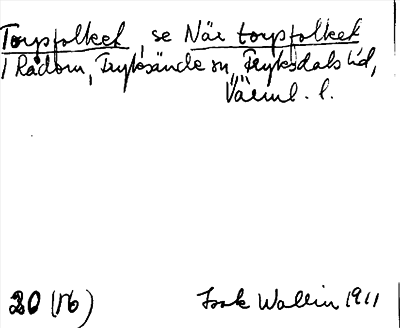 Torpfolket, se När torpfolket
i Rådom, Fryksände sn, Fryksdals hd,
Värml. l.
20 (16) Isak Wallin 1911